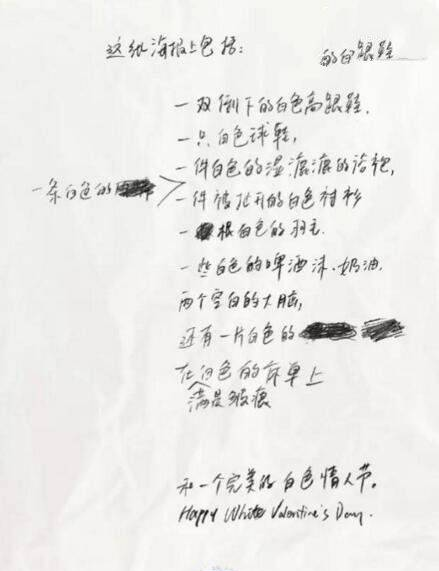 这纸海报上包括：
的白跟鞋
一双倒下的白色高跟鞋，
一只白色球鞋，
一件白色的湿漉漉的浴袍，
一条白色的
一件被扯开的白色衬衫
一根白色的羽毛
一些白色的啤酒沫、奶油，
两个空白的大脑，
还有一片白色的
在白色的床单上
满是瑕痕
和一个完美的白色情人节。
Happy White Valentine's Day.